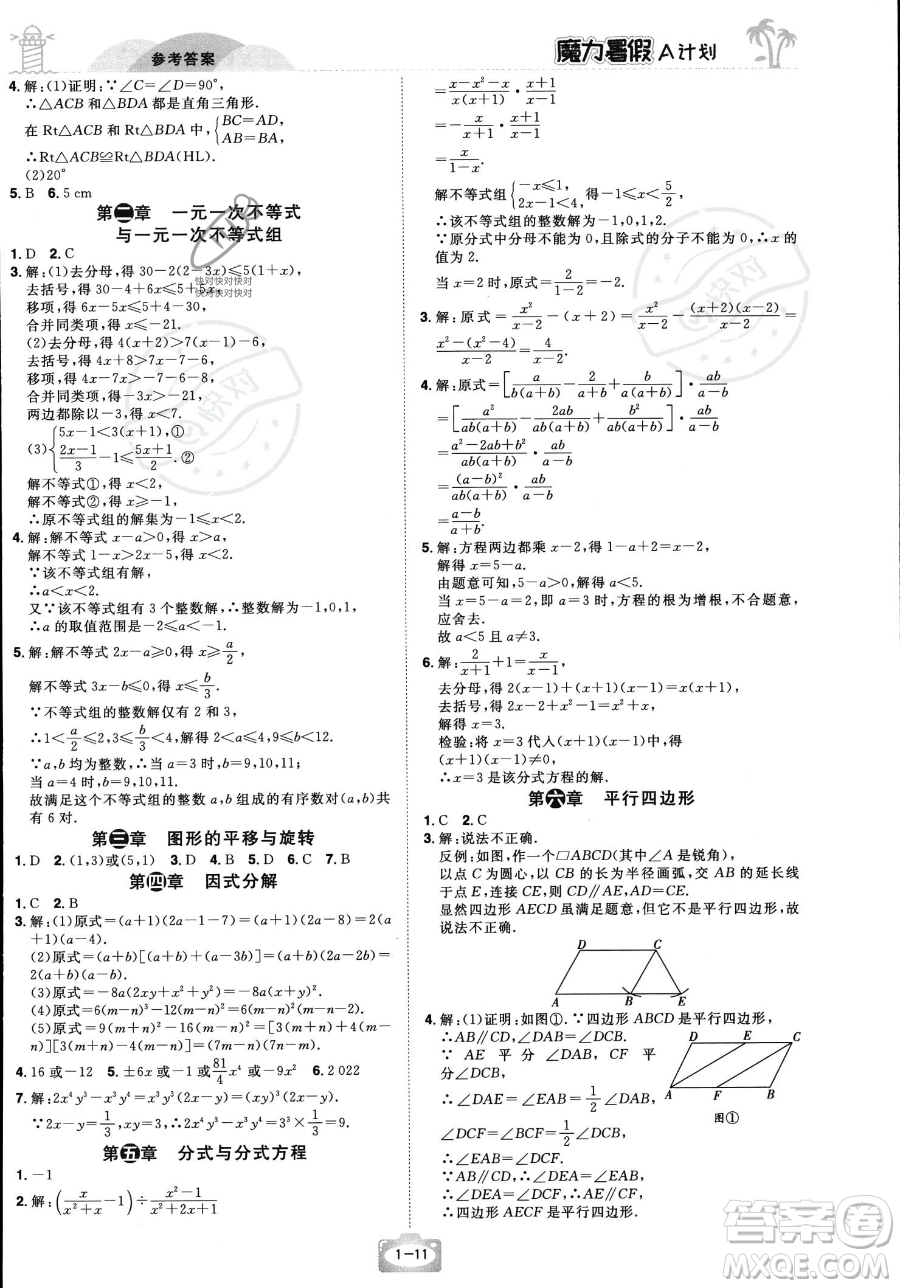 参考答案
魔力暑假 A计划
4.解:(1)证明:∵∠C=∠D=90°,
∴△ACB和△BDA都是直角三角形.
在Rt△ACB和Rt△BDA中,{BC=AD, AB=BA,
∴Rt△ACB≌Rt△BDA(HL).
(2)20°
5.B 6.5 cm
第二章 一元一次不等式
与一元一次不等式组
1.D 2.C
3.解:(1)去分母,得30-2(2-3x)≤5(1+x),
去括号,得30-4+6x≤5+5x,
移项,得6x-5x≤5+4-30,
合并同类项,得x≤-21.
(2)去分母,得4(x+2)>7(x-1)-6,
去括号,得4x+8>7x-7-6,
移项,得4x-7x>-7-6-8,
合并同类项,得-3x>-21,
两边都除以-3,得x<7.
(3){5x-1<3(x+1),① (2x-1)/3-1≤(5x+1)/2.②
解不等式①,得x<2,
解不等式②,得x≥-1,
∴原不等式组的解集为-1≤x<2.
4.解:解不等式x-a>0,得x>a,
解不等式1-x>2x-5,得x<2.
∵该不等式组有解,
∴a<x<2.
又∵该不等式组有3个整数解,
∴a的取值范围是-2≤a<-1.
5.解:解不等式2x-a≥0,得x≥a/2,
解不等式3x-b≤0,得x≤b/3.
∵不等式组的整数解仅有2和3,
∴1<a/2≤2,3≤b/3<4,解得2<a≤4,9≤b<12.
∵a,b均为整数,∴当a=3时,b=9,10,11;
当a=4时,b=9,10,11.
故满足这个不等式组的整数a,b组成的有序数对(a,b)共有6对.
第三章 图形的平移与旋转
1.D 2.(1,3)或(5,1) 3.D 4.D 5.C 6.D 7.B
第四章 因式分解
1.C 2.B
3.解:(1)原式=(a+1)(2a-1-7)=(a+1)(2a-8)=2(a
+1)(a-4).
(2)原式=(a+b)[(a+b)+(a-3b)]=(a+b)(a+b+a-3b)=
2(a+b)(a-b).
(3)原式=-8a(2xy+x²+y²)=-8a(x+y)².
(4)原式=6(m-n)³-12(m-n)²=6(m-n)²(m-n-2).
(5)原式=[(m+n)+3(m-n)][(m+n)-3(m-n)]=
4(2m-n)(2n-m).
4.16或-12 5.±6x或-9或-1或81/4x⁴ 6.2 022
7.解:2x⁴y³-x³y⁴=x³y³(2x-y)=(xy)³(2x-y).
∵2x-y=1/3,xy=3,∴2x⁴y³-x³y⁴=3³×1/3=9.
第五章 分式与分式方程
1.-1
2.解:(x/(x²+x)-1)÷(x²-1)/(x²+2x+1)
=(x-x²-x)/(x(x+1))·(x+1)/(x-1)
=-x/(x+1)·(x+1)/(x-1)
=x/(1-x).
解不等式组{-x≤1, 2x-1<4,得-1≤x<5/2,
∴该不等式组的整数解为-1,0,1,2.
∵原分式中分母不能为0,且除式的分子不能为0,∴x的
值为2.
当x=2时,原式=2/(1-2)=-2.
3.解:原式=x²/(x-2)-(x+2)=x²/(x-2)-((x+2)(x-2))/(x-2)=
(x²-(x²-4))/(x-2)=4/(x-2).
4.解:原式=[a/(b(a+b))-2/(a+b)+b/(a(a+b))]·ab/(a-b)
=[a²/(ab(a+b))-2ab/(ab(a+b))+b²/(ab(a+b))]·ab/(a-b)
=(a²-2ab+b²)/(ab(a+b))·ab/(a-b)
=(a-b)²/(ab(a+b))·ab/(a-b)
=(a-b)/(a+b).
5.解:方程两边都乘x-2,得x-3+x-2=-a,
解得x=5-a.
由题意可知,5-a>0,解得a<5.
当x=2,即a=3时,方程的根为增根,不合题意,
应舍去.
故a<5且a≠3.
6.解:2/(x+1)+1=x/(x-1),
去分母,得2(x-1)+(x+1)(x-1)=x(x+1),
去括号,得2x-2+x²-1=x²+x,
解得x=3.
检验:将x=3代入(x+1)(x-1),得4×2=8≠0,
∴x=3是该分式方程的解.
第六章 平行四边形
1.C 2.C
3.解:说法不正确.
反例:如图,作一个□ABCD(其中∠A是锐角),
以点C为圆心,CB的长为半径画弧,交AB的延长线
于点E,连接CE,则CD∥AE,AD=CB=CE.
显然四边形AECD虽满足题意,但它不是平行四边形,故该
说法不正确.
D C
A B E
4.解:(1)证明:如图①.∵四边形ABCD是平行四边形,
∴AB∥CD,∠DAB=∠DCB.
∵AE平分∠DAB,CF平分∠DCB,
∴∠DAE=∠EAB=1/2∠DAB,
∠DCF=∠BCF=1/2∠DCB,
∴∠EAB=∠DCF.
∵AB∥CD,∴∠DEA=∠EAB,
∴∠DEA=∠DCF,
∴AE∥FC.
D E C
A F B
图①
1-11
快对快对快对
快对快对快对
答案卷
MXQE.COM